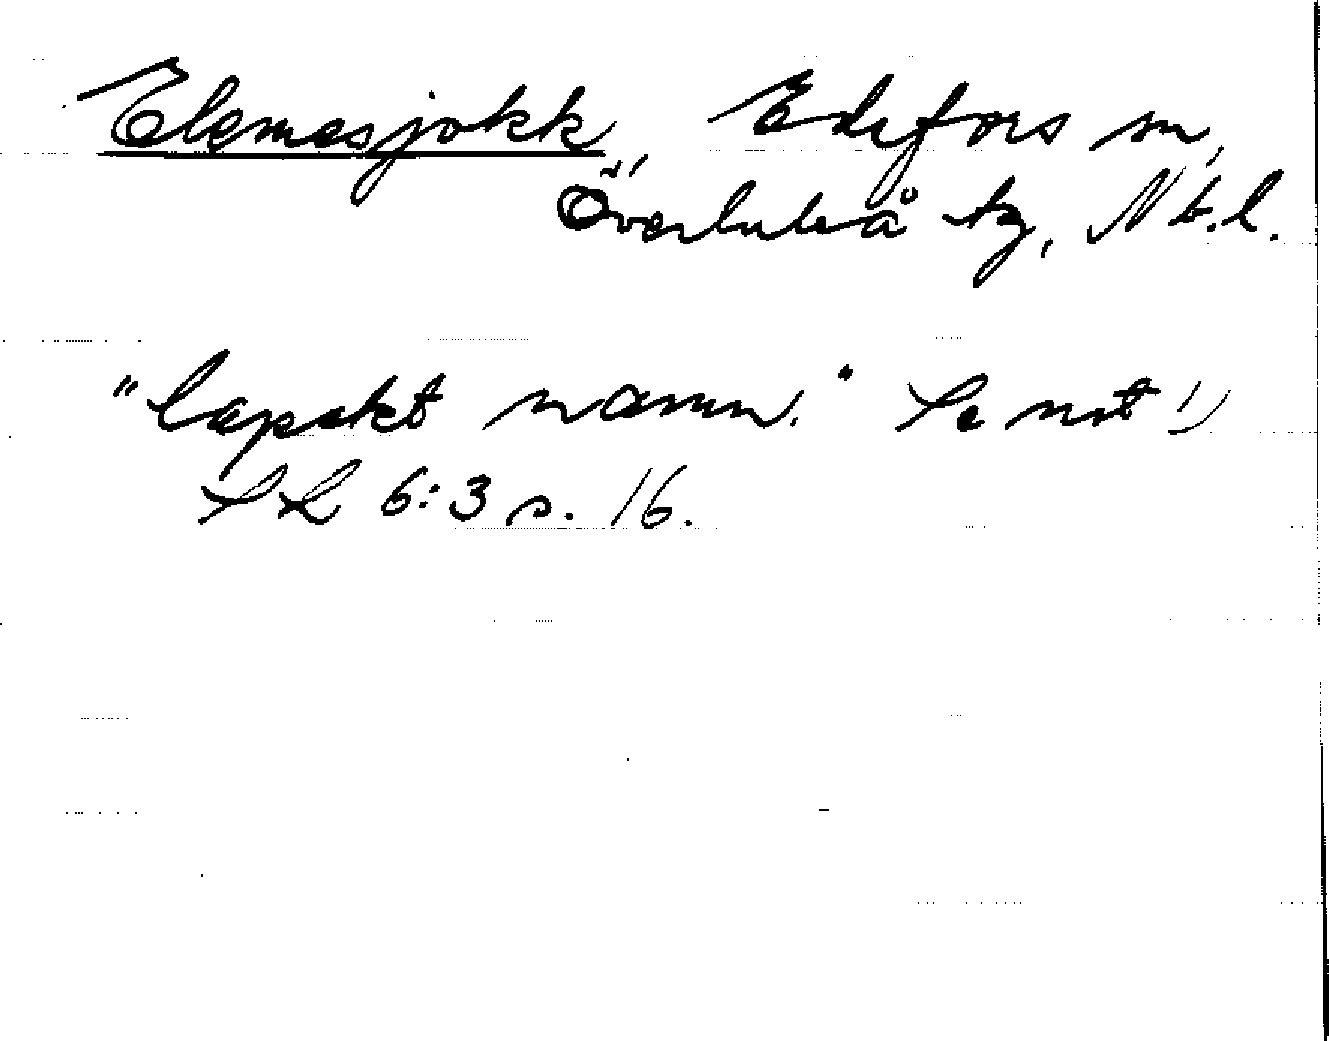 Elemesjokk, Edefors sn,
Överluleå tg, Nb.l.
"lapskt namn." Se not 1)
SL 6:3 s. 16.